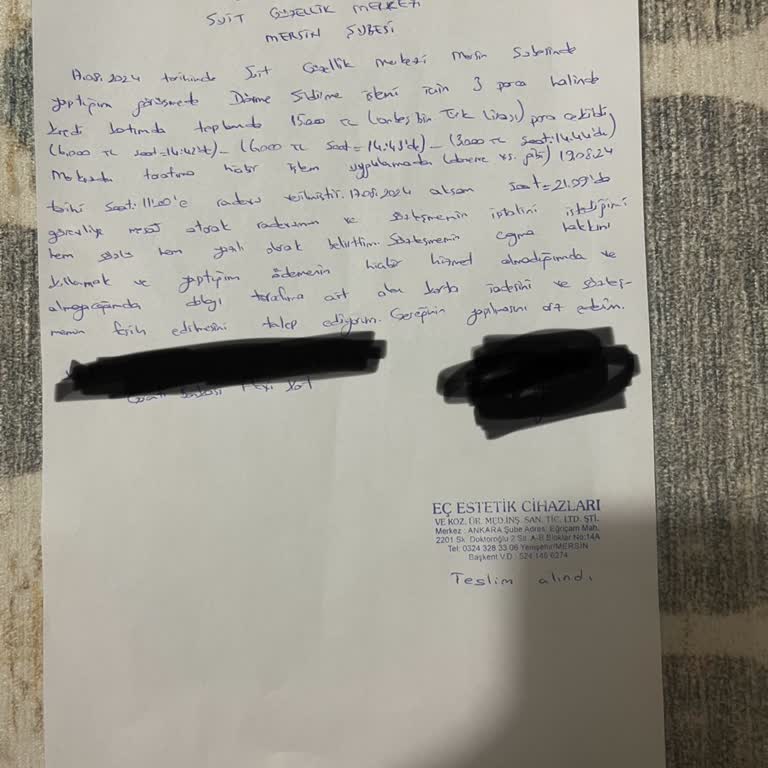 SUİT GÜZELLİK MERKEZİ
MERSİN ŞUBESİ
17.08.2024 tarihinde Suit Güzellik Merkezi Mersin Şubesinde
yaptığım görüşmede Dövme Sildirme işlemi için 3 parça halinde
kredi kartımdan toplamda 15000 TL (onbeş bin Türk Lirası) para çekildi.
(6.000 TL saat=14:42'de) - (6000 TL saat=14:43'de) - (3000 TL saat:14:44'de)
Merkezde tarafıma hiçbir işlem uygulanmadan (deneme vs. gibi) 19.08.24
tarihi saat: 11:00'e randevu verilmiştir. 17.08.2024 akşam saat=21.99'da
görevliye mesaj atarak randevumun ve sözleşmenin iptalini istediğimi
hem sözlü hem yazılı olarak belirttim. Sözleşmenin cayma hakkını
kullanmak ve yaptığım ödemenin hiçbir hizmet almadığımda ve
almayacağımda dolayı tarafıma ait olan karta iadesini ve sözleş-
menin fesih edilmesini talep ediyorum. Gereğinin yapılmasını arz ederim.
EÇ ESTETİK CİHAZLARI
VE KOZ. ÜR. MED.İNŞ. SAN. TİC. LTD. ŞTİ.
Merkez : ANKARA Şube Adres: Eğriçam Mah.
2201 Sk. Doktoroğlu 2 Sit. A-B Bloklar No:14A
Tel: 0324 328 33 06 Yenişehir/MERSİN
Başkent V.D : 324 145 6274
Teslim alındı